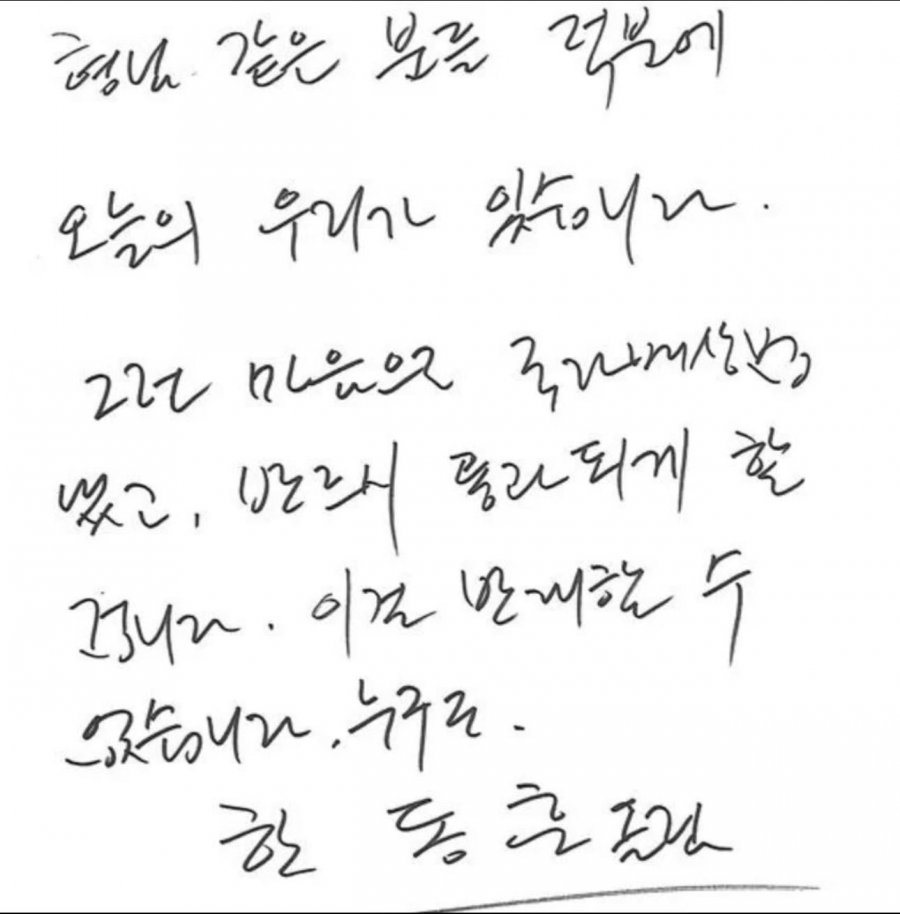 형님 같은 분들 덕분에
오늘의 우리가 있습니다.
그런 마음으로 국가배상법
냈고, 반드시 통과되게 할
겁니다. 이걸 반대할 수
없습니다. 누구도.
한 동 훈 올림